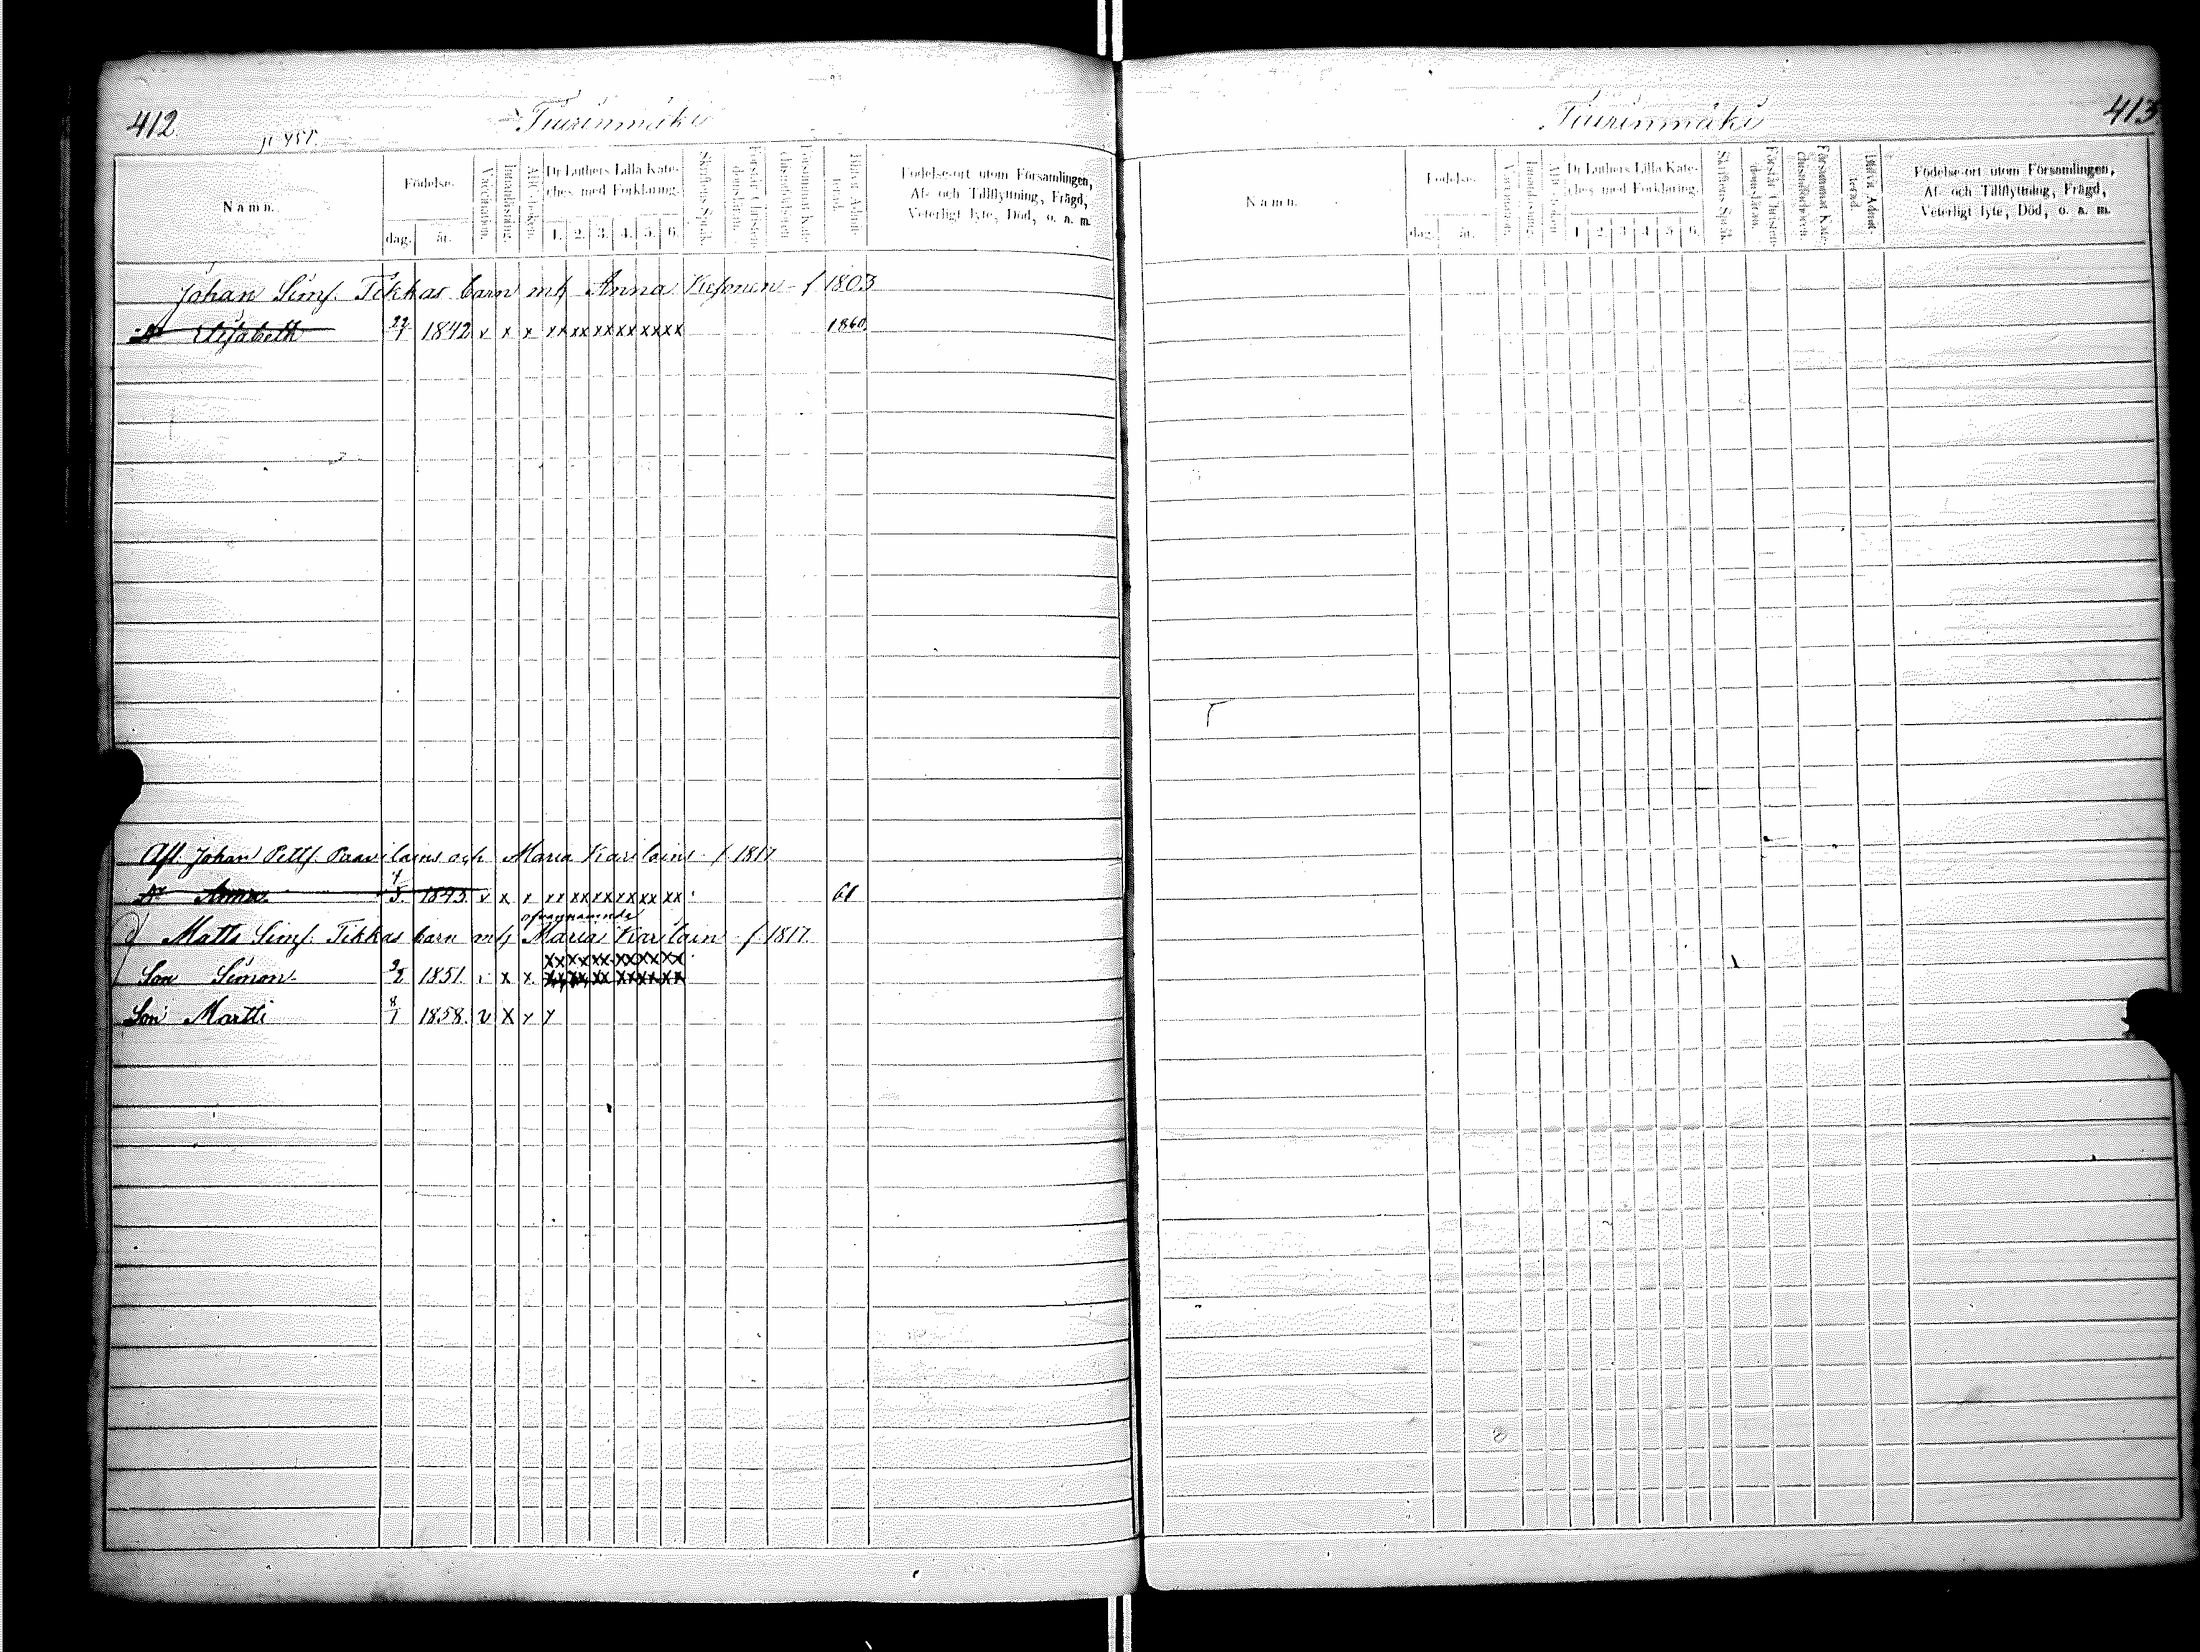 412
Tiurinmäki
Namn.
Födelse.
dag.
år.
Vaccination.
Innanläsning.
Abc-boken.
Dr Luthers Lilla Kate-
ches med Förklaring.
1. 2. 3. 4. 5. 6.
Skriftens Språk.
Förstår Christen-
domsläran.
Försummat Kate-
chismiförhören.
Blifvit Admit-
terad.
Födelse-ort utom Församlingen,
Af- och Tillflyttning, Frägd,
Veterligt lyte, Död, o. a. m.
Johan Simss. Tikkas barn m/ Anna f. 1803
Dr Elisabeth 1842 v x x xx xx xx xx xx xx 1860.
Afl. Johan Pettss. Paavilains och Maria Karilains f. 1817
Dr Anna 1843 v x x xx xx xx xx xx xx 61
ofvannämnde
Matts Simss. Tikkas barn m/ Marias Karilain f. 1817.
xx xx xx xx xx xx
Son Simon 1851. v x x xx xx xx xx xx xx
Son Martti 8/1 1858. v x x x
413
Tiurinmäki
Namn.
Födelse.
dag.
år.
Vaccination.
Innanläsning.
Abc-boken.
Dr Luthers Lilla Kate-
ches med Förklaring.
1. 2. 3. 4. 5. 6.
Skriftens Språk.
Förstår Christen-
domsläran.
Försummat Kate-
chismiförhören.
Blifvit Admit-
terad.
Födelse-ort utom Församlingen,
Af- och Tillflyttning, Frägd,
Veterligt lyte, Död, o. a. m.